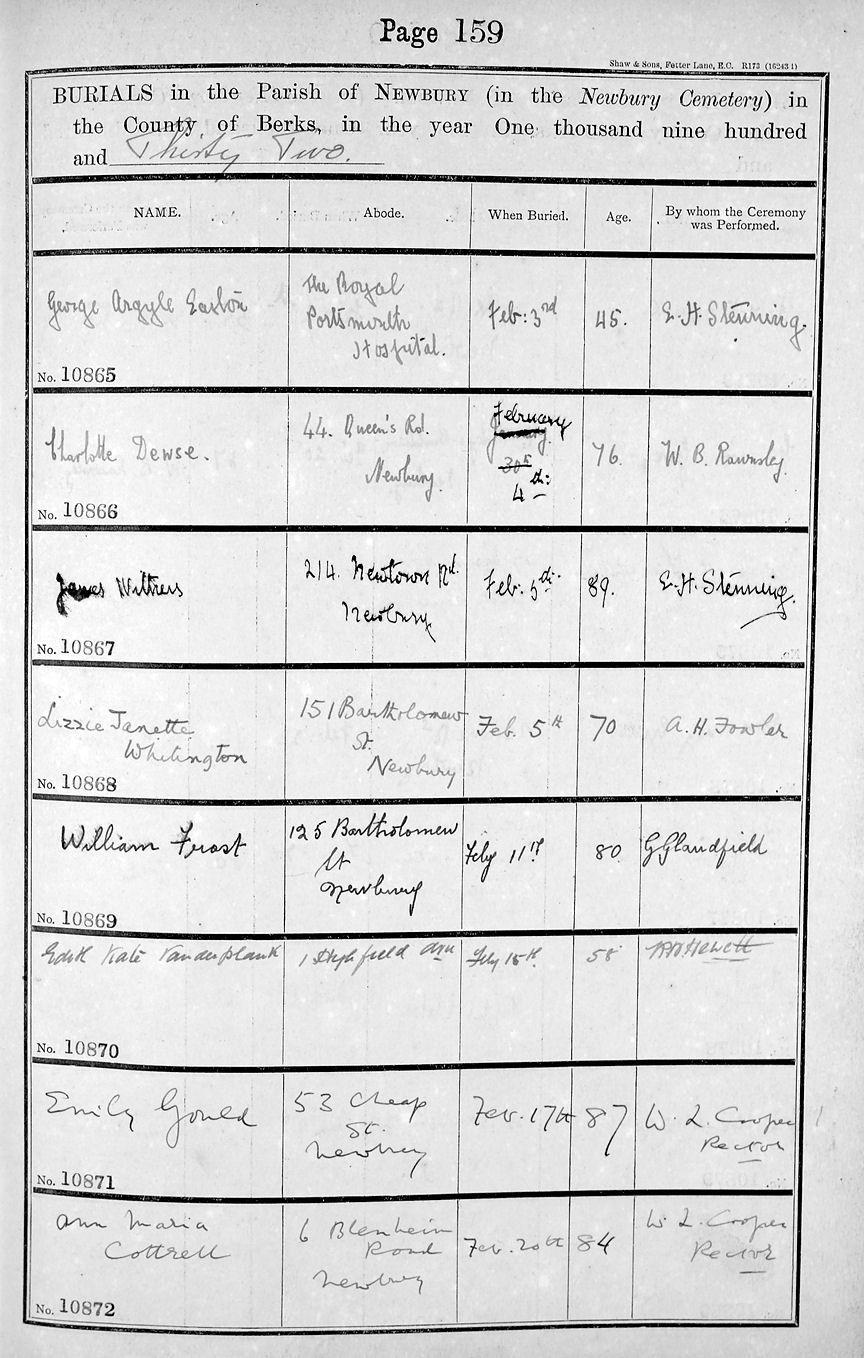 Page 159
Shaw & Sons, Fetter Lane, E.C. R173 (16243 1)
BURIALS in the Parish of NEWBURY (in the Newbury Cemetery) in
the County of Berks, in the year One thousand nine hundred
and Thirty Two.
NAME. Abode. When Buried. Age. By whom the Ceremony
was Performed.
George Argyle Easton
The Royal
Portsmouth
Hospital.
Feb: 3rd
45.
E. H. Stenning.
No. 10865
Charlotte Dewse.
44. Queen's Rd.
Newbury.
February
January.
30th
4th:
76.
W. B. Rawnsley
No. 10866
James Witters
214. Newtown Rd.
Newbury
Feb. 5th.
89.
E. H. Stenning.
No. 10867
Lizzie Janette
Whitington
151 Bartholomew
St.
Newbury
Feb. 5th
70
A. H. Fowler
No. 10868
William Frost
125 Bartholomew
St
Newbury
Feby 11th
80
G Glandfield
No. 10869
Edith Kate Vanderplank
1 Highfield Ave
Feby 15th
58
Hewett
No. 10870
Emily Gould
53 Cheap
St.
Newbury
Feb. 17th
87
W. L. Cooper
Rector
No. 10871
Ann Maria
Cottrell
6 Blenheim
Road
Newbury
Feb. 20th
84
W. L. Cooper
Rector
No. 10872